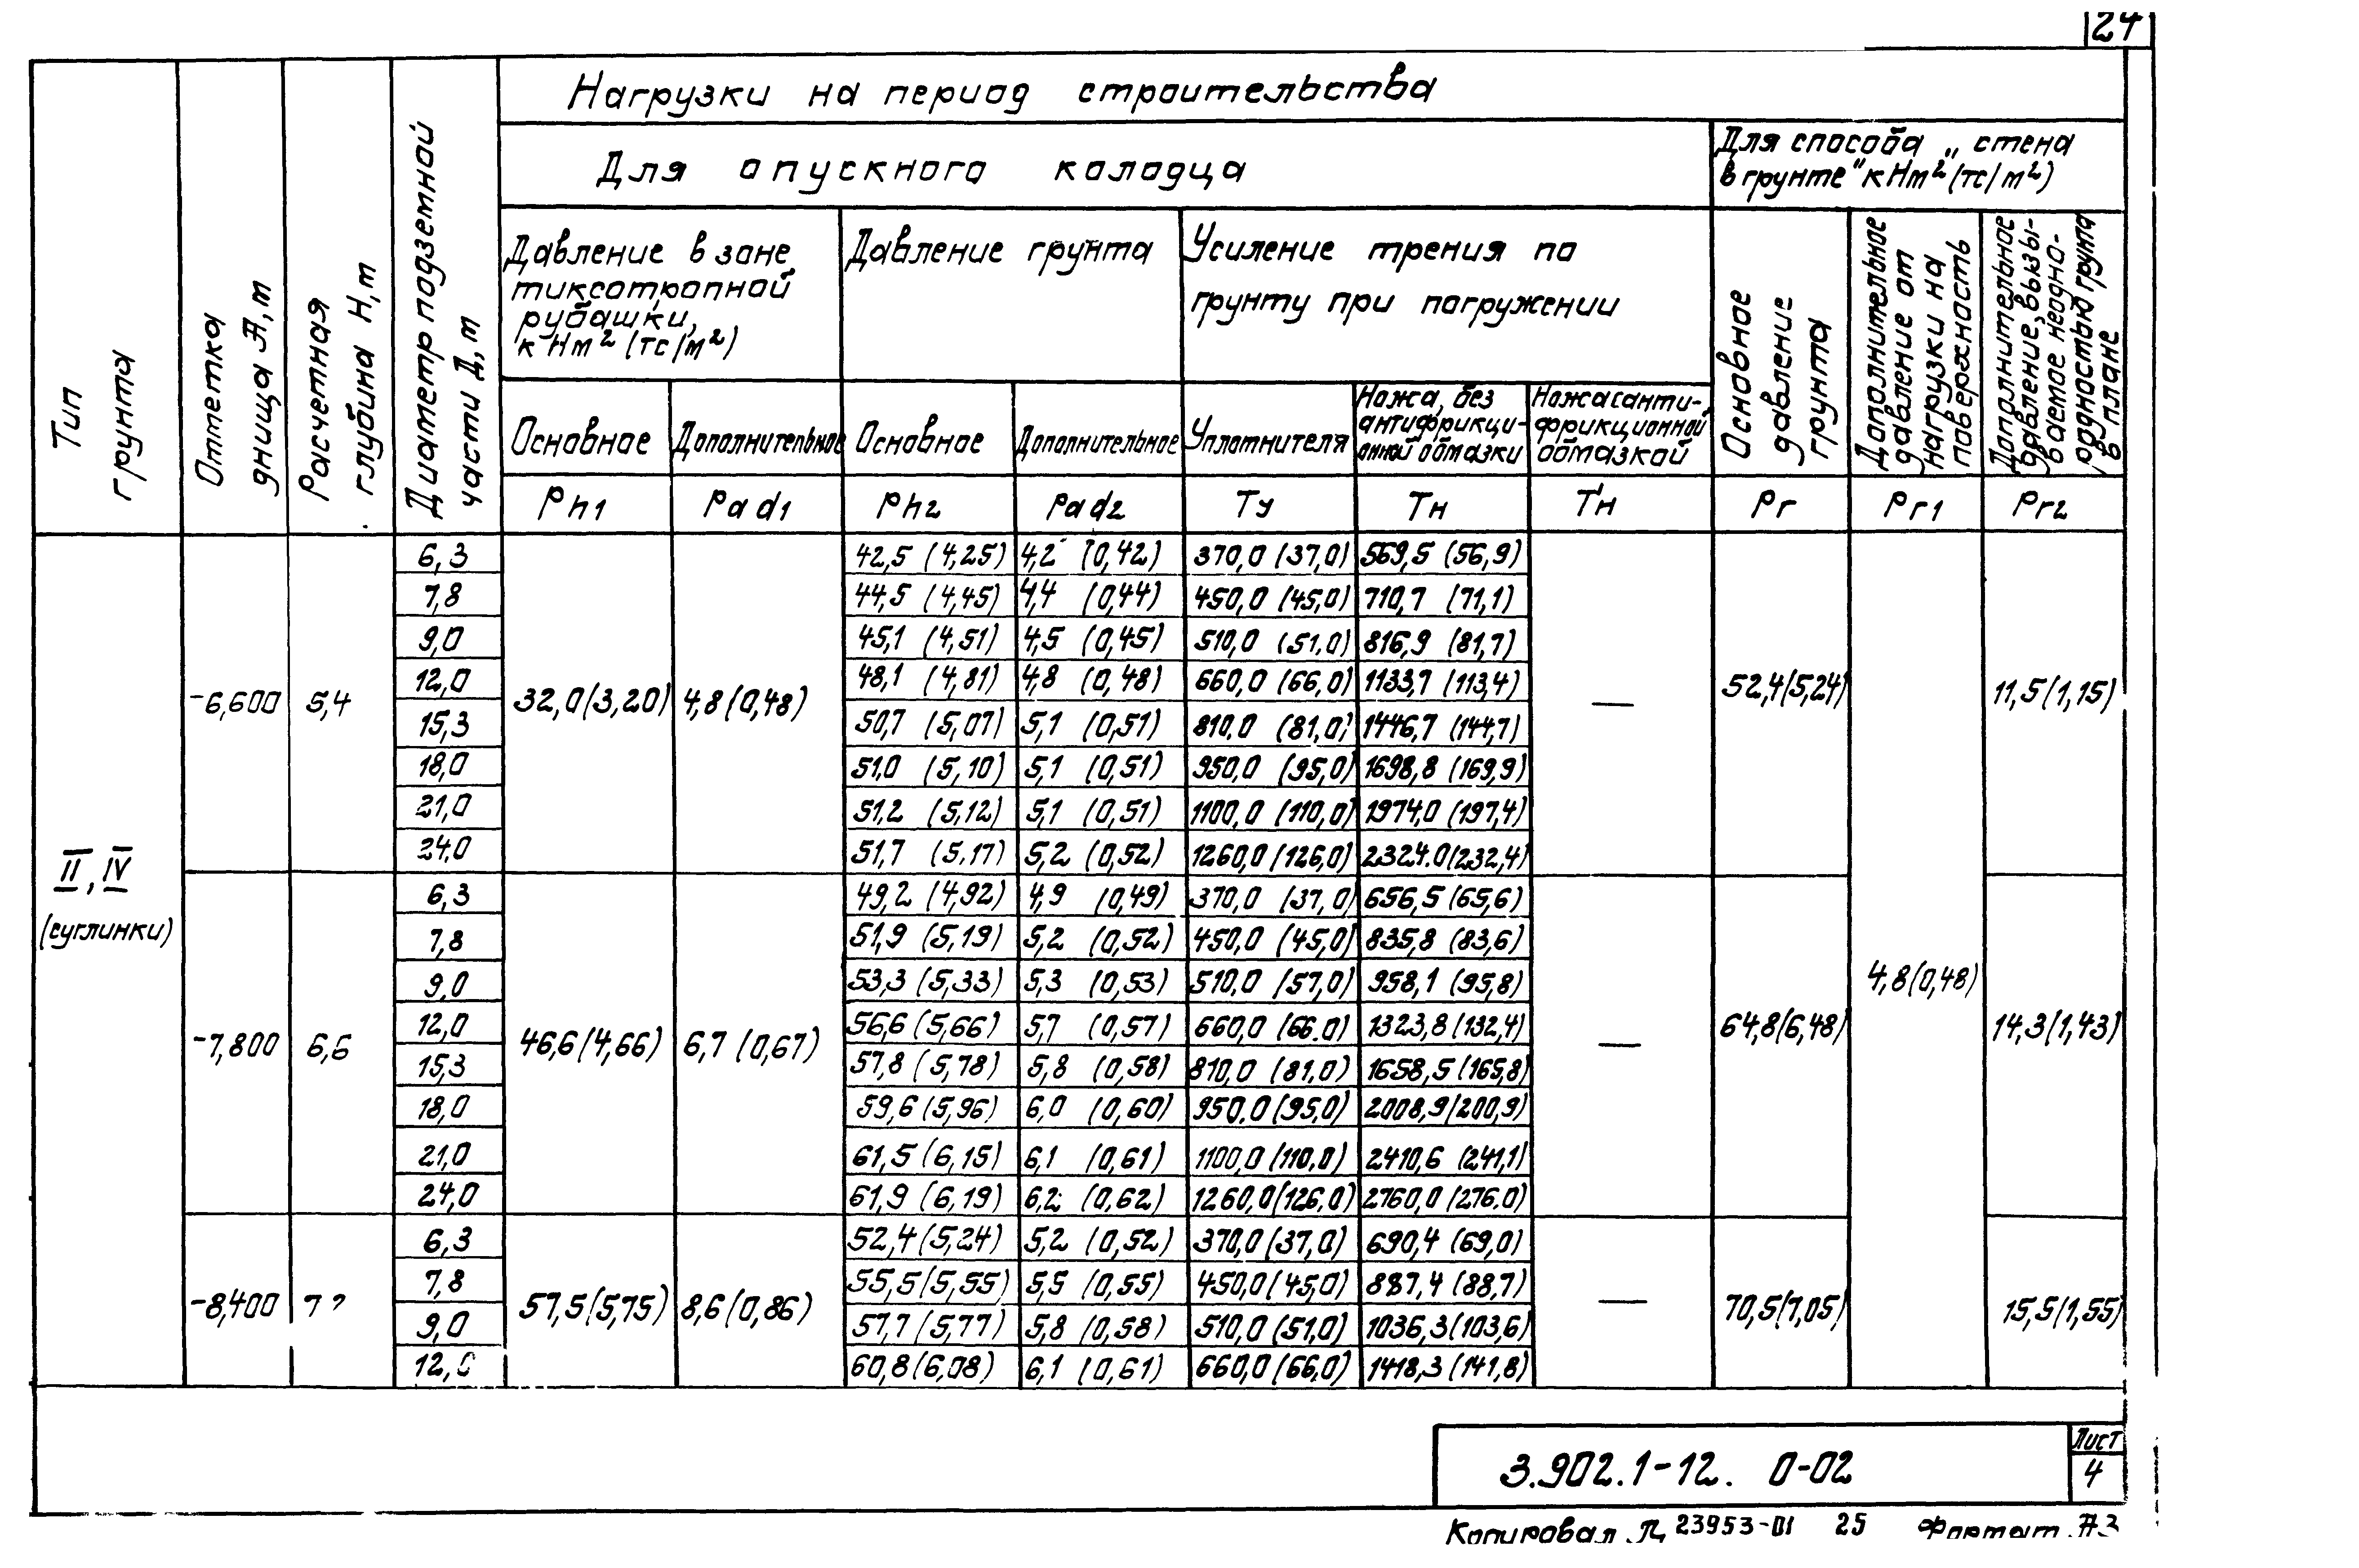 24
Нагрузки на период строительства
Для опускного колодца
Для способа „стена
в грунте" кНm² (тс/м²)
Тип
грунта
Отметка
днища А, m
Расчетная
глубина Н, m
Диаметр подземной
части Д, m
Давление в зоне
тиксотропной
рубашки,
кНm² (тс/м²)
Давление грунта
Усиление трения по
грунту при погружении
Основное
давление
грунта
Дополнительное
давление от
нагрузки на
поверхность
Дополнительное
давление, вызы-
ваемое неодно-
родностью грунта
в плане
Основное Дополнительное Основное Дополнительное Уплотнителя
Ножа, без
антифрикци-
онной обмазки
Ножа с анти-
фрикционной
обмазкой
Ph1 Pad1 Ph2 Pad2 Ту Тн Т'н Pr Pr1 Pr2
II, IV
(суглинки)
-6,600 5,4 32,0(3,20) 4,8(0,48) — 52,4(5,24) 11,5(1,15)
6,3 42,5 (4,25) 4,2 (0,42) 370,0 (37,0) 569,5 (56,9)
7,8 44,5 (4,45) 4,4 (0,44) 450,0 (45,0) 710,7 (71,1)
9,0 45,1 (4,51) 4,5 (0,45) 510,0 (51,0) 816,9 (81,7)
12,0 48,1 (4,81) 4,8 (0,48) 660,0 (66,0) 1133,7 (113,4)
15,3 50,7 (5,07) 5,1 (0,51) 810,0 (81,0) 1446,7 (144,7)
18,0 51,0 (5,10) 5,1 (0,51) 950,0 (95,0) 1698,8 (169,9)
21,0 51,2 (5,12) 5,1 (0,51) 1100,0 (110,0) 1974,0 (197,4)
24,0 51,7 (5,17) 5,2 (0,52) 1260,0 (126,0) 2324.0 (232,4)
-7,800 6,6 46,6(4,66) 6,7 (0,67) — 64,8(6,48) 4,8(0,48) 14,3(1,43)
6,3 49,2 (4,92) 4,9 (0,49) 370,0 (37,0) 656,5 (65,6)
7,8 51,9 (5,19) 5,2 (0,52) 450,0 (45,0) 835,8 (83,6)
9,0 53,3 (5,33) 5,3 (0,53) 510,0 (57,0) 958,1 (95,8)
12,0 56,6 (5,66) 5,7 (0,57) 660,0 (66.0) 1323,8 (132,4)
15,3 57,8 (5,78) 5,8 (0,58) 810,0 (81,0) 1658,5 (165,8)
18,0 59,6 (5,96) 6,0 (0,60) 950,0 (95,0) 2008,9 (200,9)
21,0 61,5 (6,15) 6,1 (0,61) 1100,0 (110,0) 2410,6 (241,1)
24,0 61,9 (6,19) 6,2 (0,62) 1260,0 (126,0) 2760,0 (276.0)
-8,400 57,5(5,75) 8,6(0,86) — 70,5(7,05) 15,5(1,55)
6,3 52,4 (5,24) 5,2 (0,52) 370,0 (37,0) 690,4 (69,0)
7,8 55,5 (5,55) 5,5 (0,55) 450,0 (45,0) 887,4 (88,7)
9,0 57,7 (5,77) 5,8 (0,58) 510,0 (51,0) 1036,3 (103,6)
12,0 60,8 (6,08) 6,1 (0,61) 660,0 (66,0) 1418,3 (141,8)
3.902.1-12. 0-02
Лист
4
Копировал 23953-01 25 Формат А3